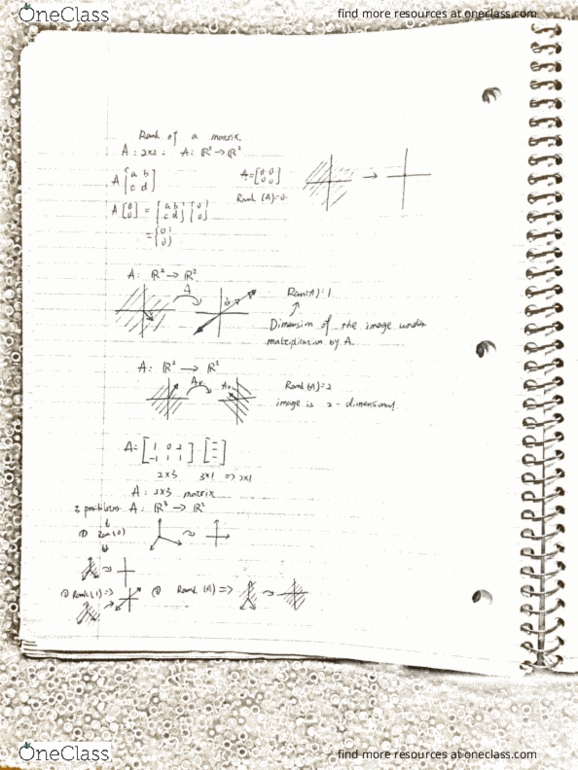 OneClass
find more resources at oneclass.com
Rank of a matrix
A : 2x2 : A: ℝ² → ℝ²
A [a b
c d]
A = [0 0
0 0]
Rank (A)=0.
A [0
0] = [a b
c d] [0
0]
= [0
0]
A: ℝ² → ℝ²
A
Rank(A)=1
Dimension of the image under
multiplication by A.
A: ℝ² → ℝ²
Av
Av
Rank(A)=2
image is 2-dimensional
A = [1 0 2
-1 1 1]
2x3 3x1 => 2x1
A : 2x3 matrix
A: ℝ³ → ℝ²
①
② Rank(1) =>
Rank (A) =>
OneClass
find more resources at oneclass.com